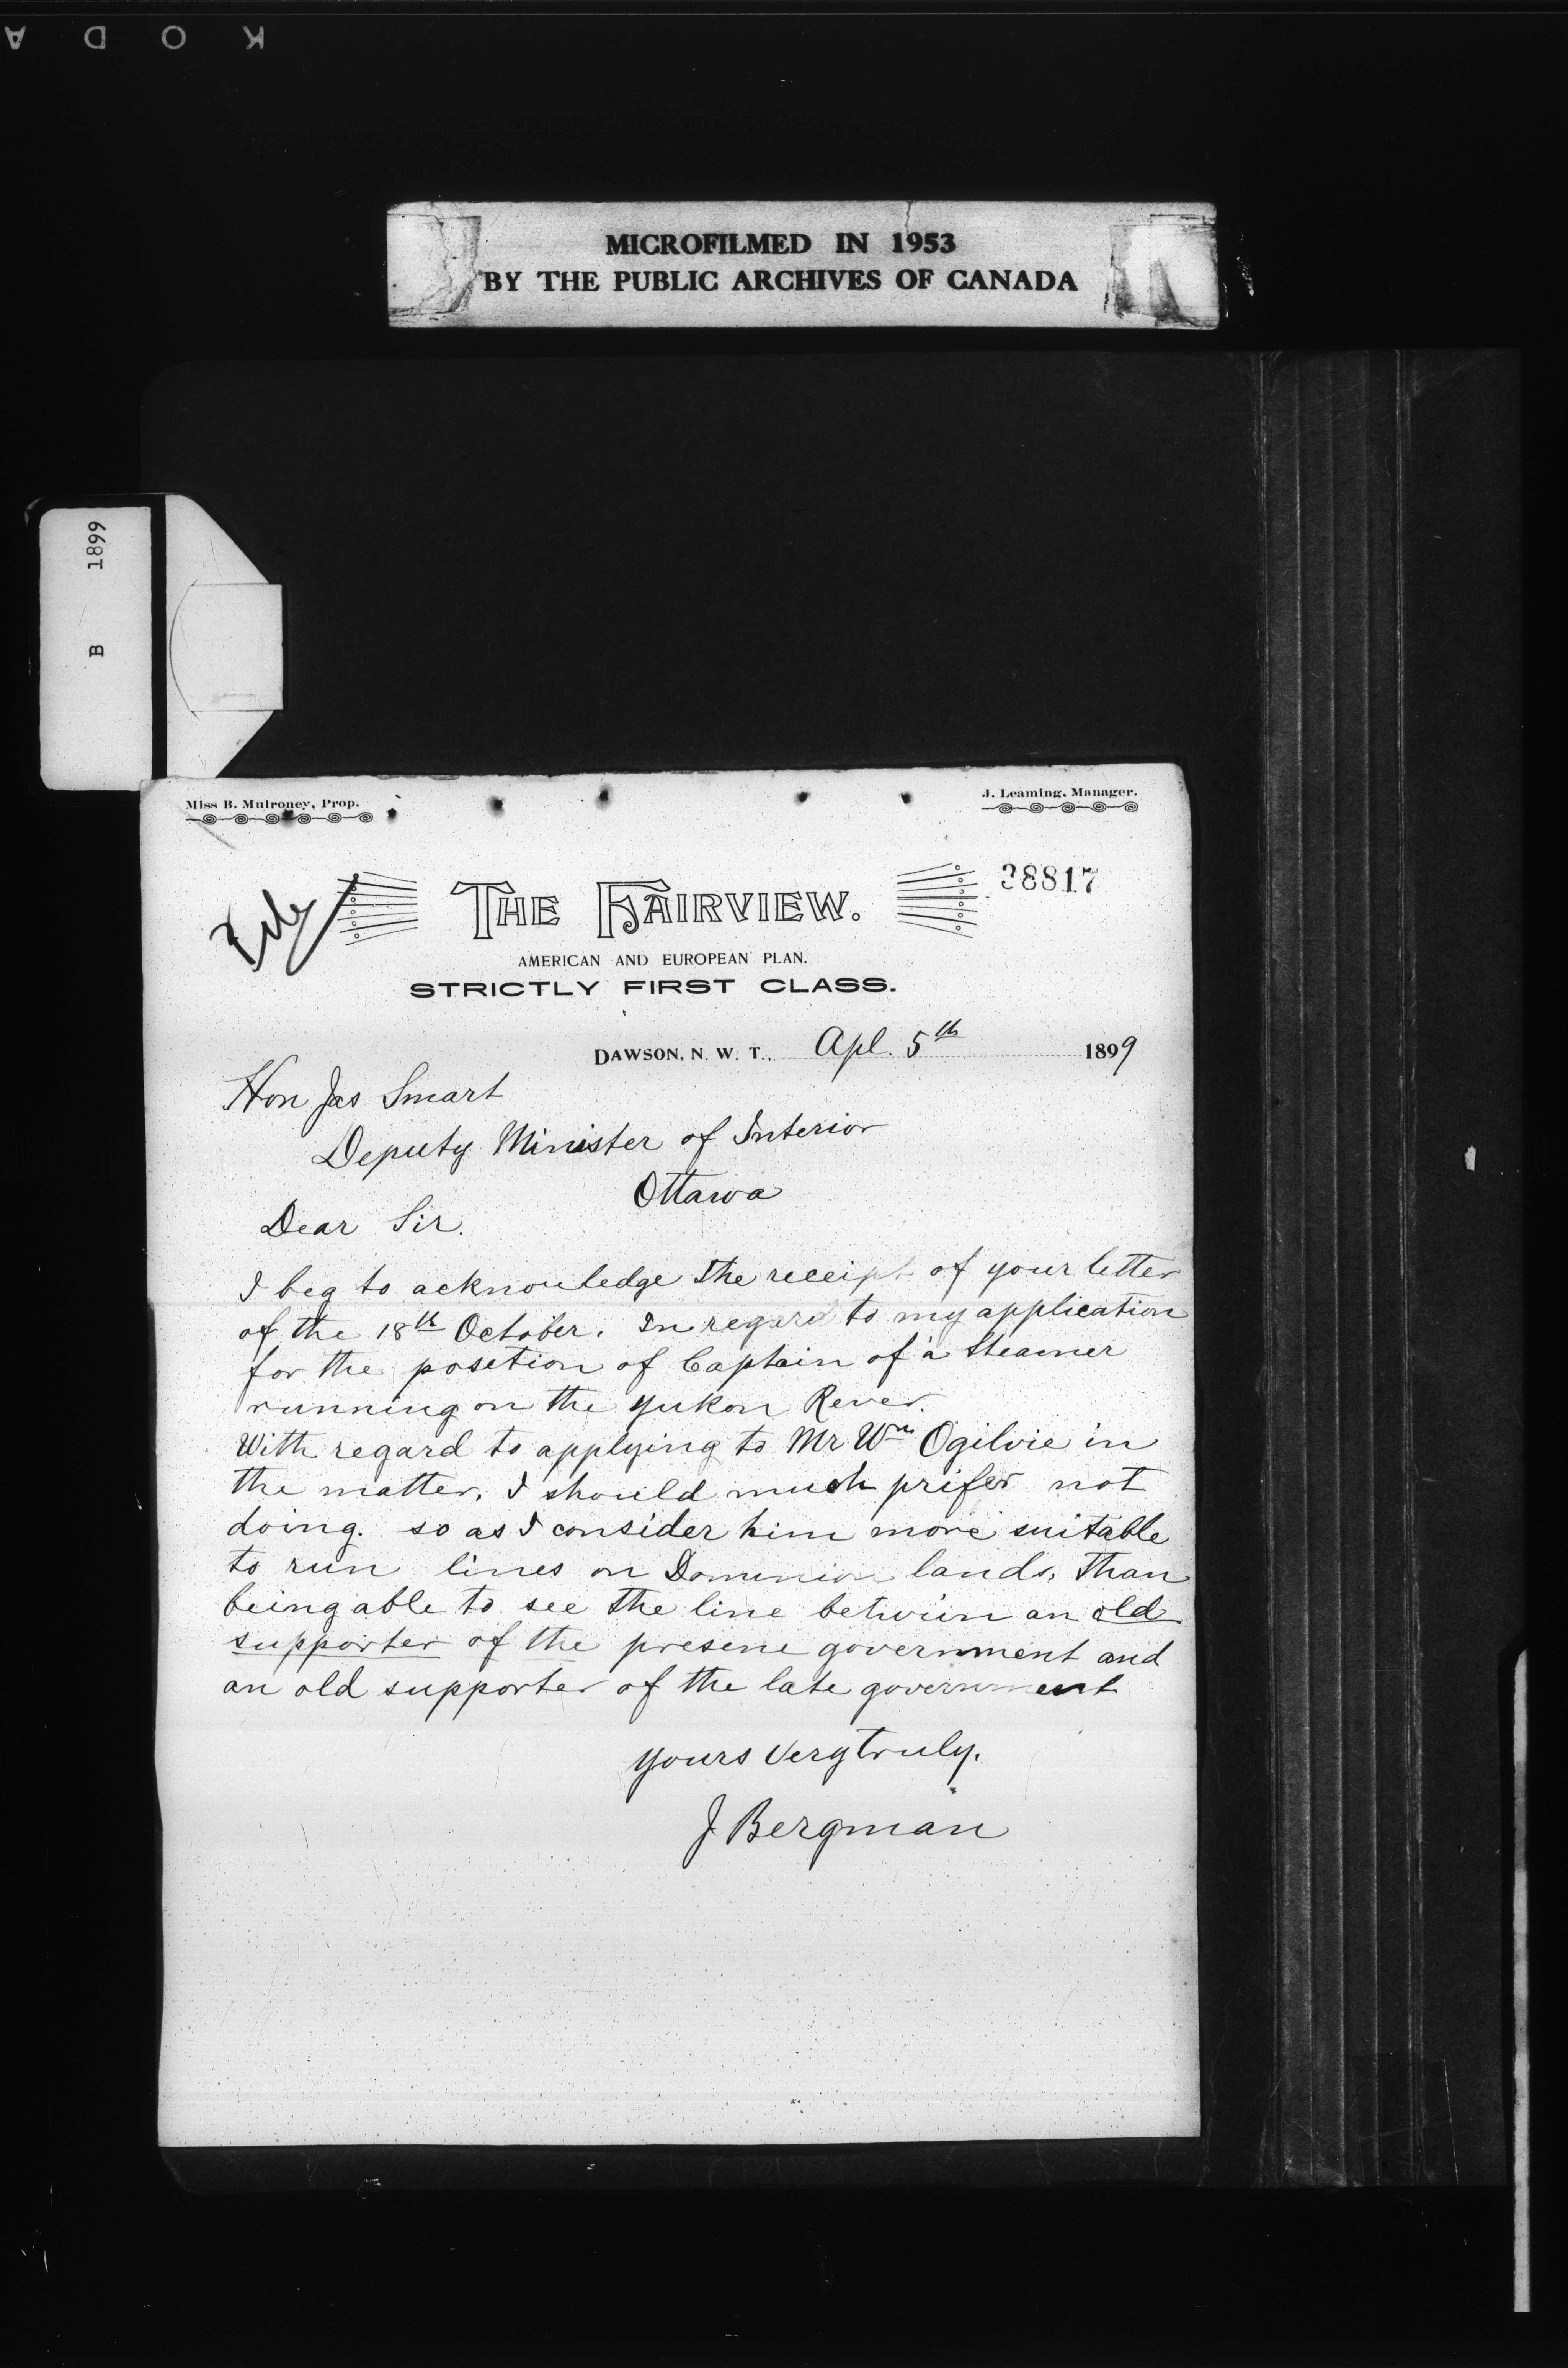 KODA
MICROFILMED IN 1953
BY THE PUBLIC ARCHIVES OF CANADA
B 1899
Miss B. Mulroney, Prop.
J. Leaming, Manager.
38817
File
THE FAIRVIEW.
AMERICAN AND EUROPEAN PLAN.
STRICTLY FIRST CLASS.
DAWSON, N. W. T., Apl. 5th 1899
Hon Jas Smart
Deputy Minister of Interior
Ottawa
Dear Sir.
I beg to acknowledge the receipt of your letter
of the 18th October. In regard to my application
for the posetion of Captain of a Steamer
running on the Yukon Rever.
With regard to applying to Mr Wm Ogilvie in
the matter, I should much prifer not
doing. so as I consider him more suitable
to run lines on Dominion lands, than
being able to see the line betwein an old
supporter of the presene government and
an old supporter of the late government
Yours Very truly.
J Bergman